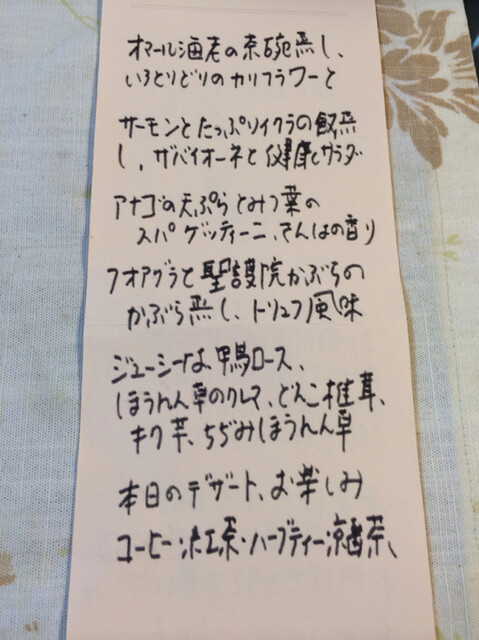 オマール海老の茶碗蒸し、
いろとりどりのカリフラワーと
サーモンとたっぷりイクラの飯蒸
し、ザバイオーネと健康サラダ
アナゴの天ぷらとみつ葉の
スパゲッティーニ、さんしょの香り
フォアグラと聖護院かぶらの
かぶら蒸し、トリュフ風味
ジューシーな鴨ロース、
ほうれん草のクレマ、どんこ椎茸、
キク芋、ちぢみほうれん草
本日のデザート、お楽しみ
コーヒー・紅茶・ハーブティー